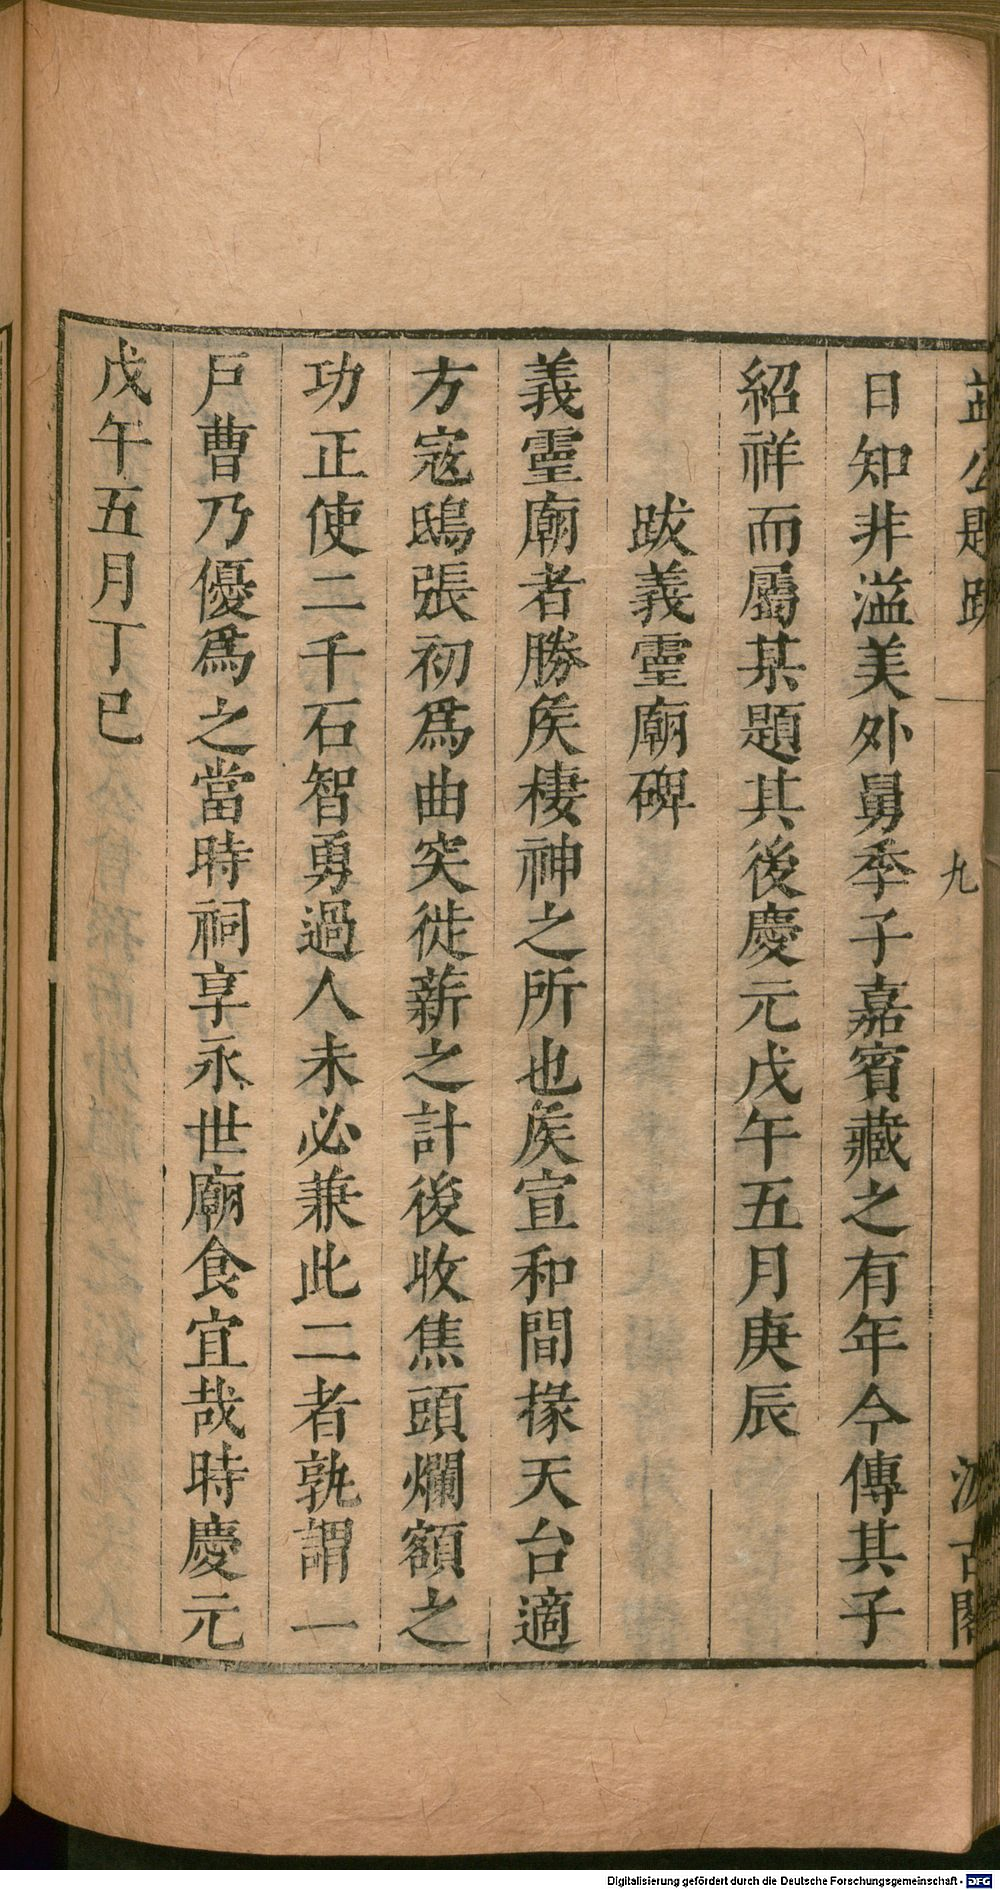 益公題跋 九 汲古閣
日知非溢美外舅季子嘉賓藏之有年今傳其子
紹祥而屬某題其後慶元戊午五月庚辰
跋義靈廟碑
義靈廟者勝矦棲神之所也矦宣和間掾天台適
方寇鴟張初爲曲突徙薪之計後收焦頭爛額之
功正使二千石智勇過人未必兼此二者孰謂一
戶曹乃優爲之當時祠享永世廟食宜哉時慶元
戊午五月丁巳
Digitalisierung gefördert durch die Deutsche Forschungsgemeinschaft - DFG